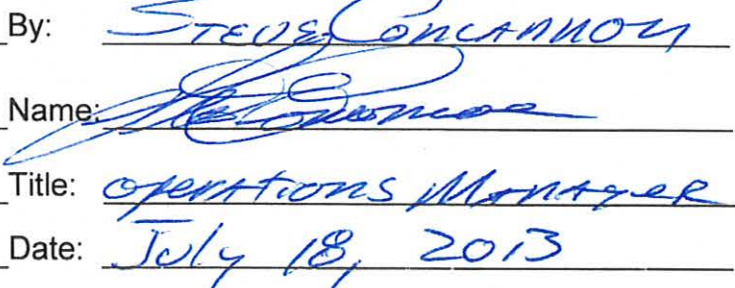 By: Steve Concannon
Name:
Title: Operations Manager
Date: July 18, 2013